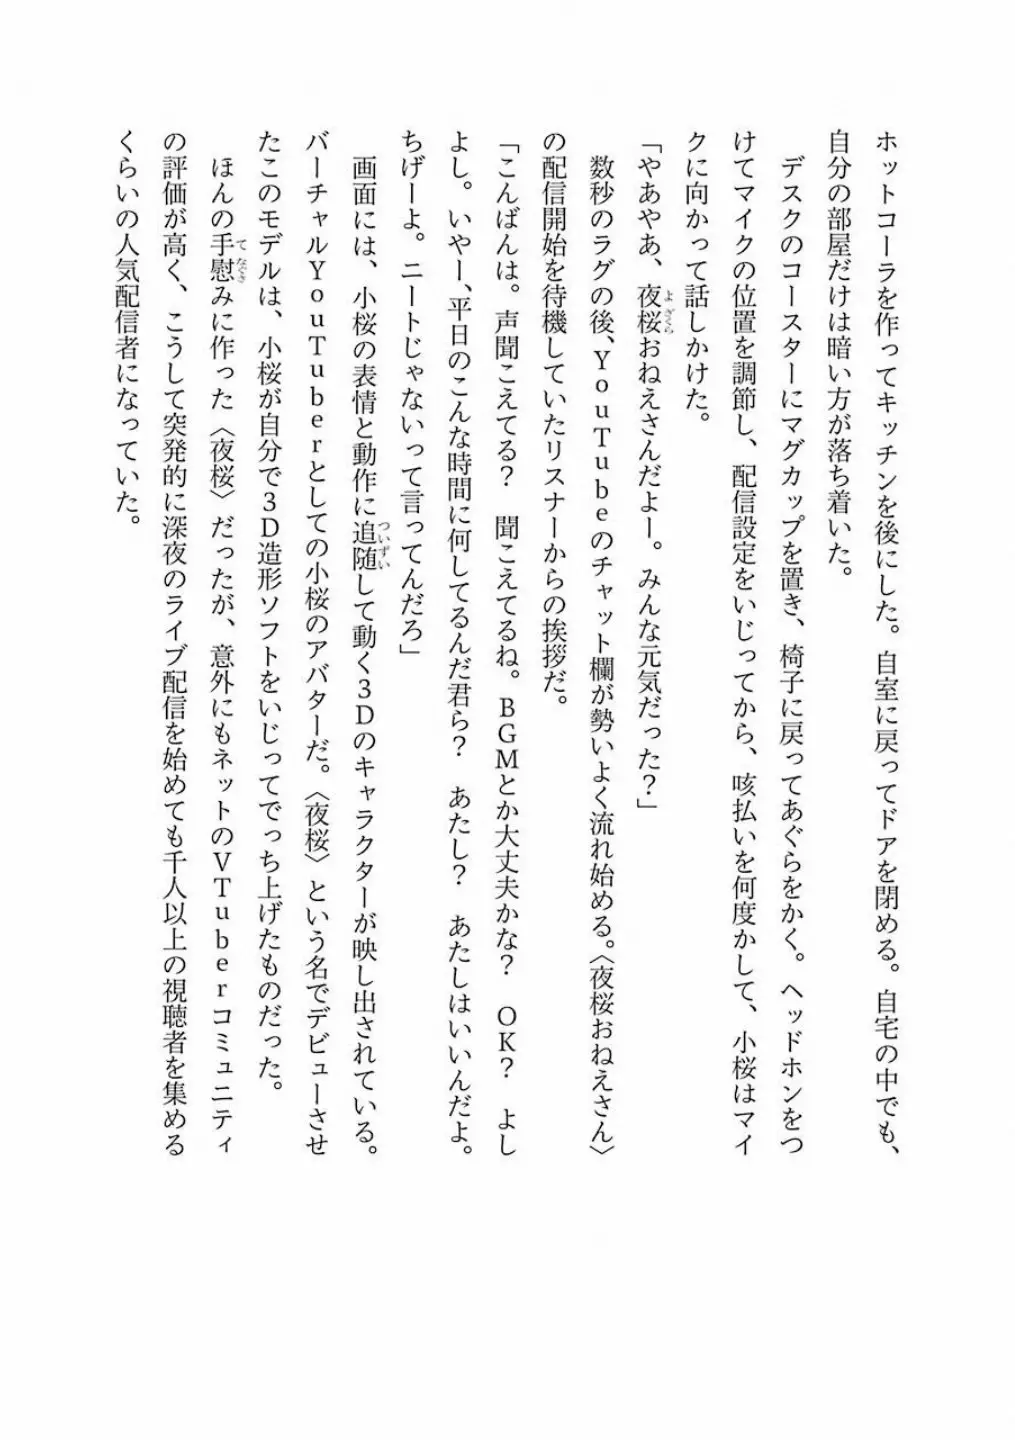 ホットコーラを作ってキッチンを後にした。自室に戻ってドアを閉める。自宅の中でも、
自分の部屋だけは暗い方が落ち着いた。
　デスクのコースターにマグカップを置き、椅子に戻ってあぐらをかく。ヘッドホンをつ
けてマイクの位置を調節し、配信設定をいじってから、咳払いを何度かして、小桜はマイ
クに向かって話しかけた。
「やあやあ、夜桜おねえさんだよー。みんな元気だった？」
　数秒のラグの後、YouTubeのチャット欄が勢いよく流れ始める。〈夜桜おねえさん〉
の配信開始を待機していたリスナーからの挨拶だ。
「こんばんは。声聞こえてる？　聞こえてるね。BGMとか大丈夫かな？　OK？　よし
よし。いやー、平日のこんな時間に何してるんだ君ら？　あたし？　あたしはいいんだよ。
ちげーよ。ニートじゃないって言ってんだろ」
　画面には、小桜の表情と動作に追随して動く3Dのキャラクターが映し出されている。
バーチャルYouTuberとしての小桜のアバターだ。〈夜桜〉という名でデビューさせ
たこのモデルは、小桜が自分で3D造形ソフトをいじってでっち上げたものだった。
　ほんの手慰みに作った〈夜桜〉だったが、意外にもネットのVTuberコミュニティ
の評価が高く、こうして突発的に深夜のライブ配信を始めても千人以上の視聴者を集める
くらいの人気配信者になっていた。